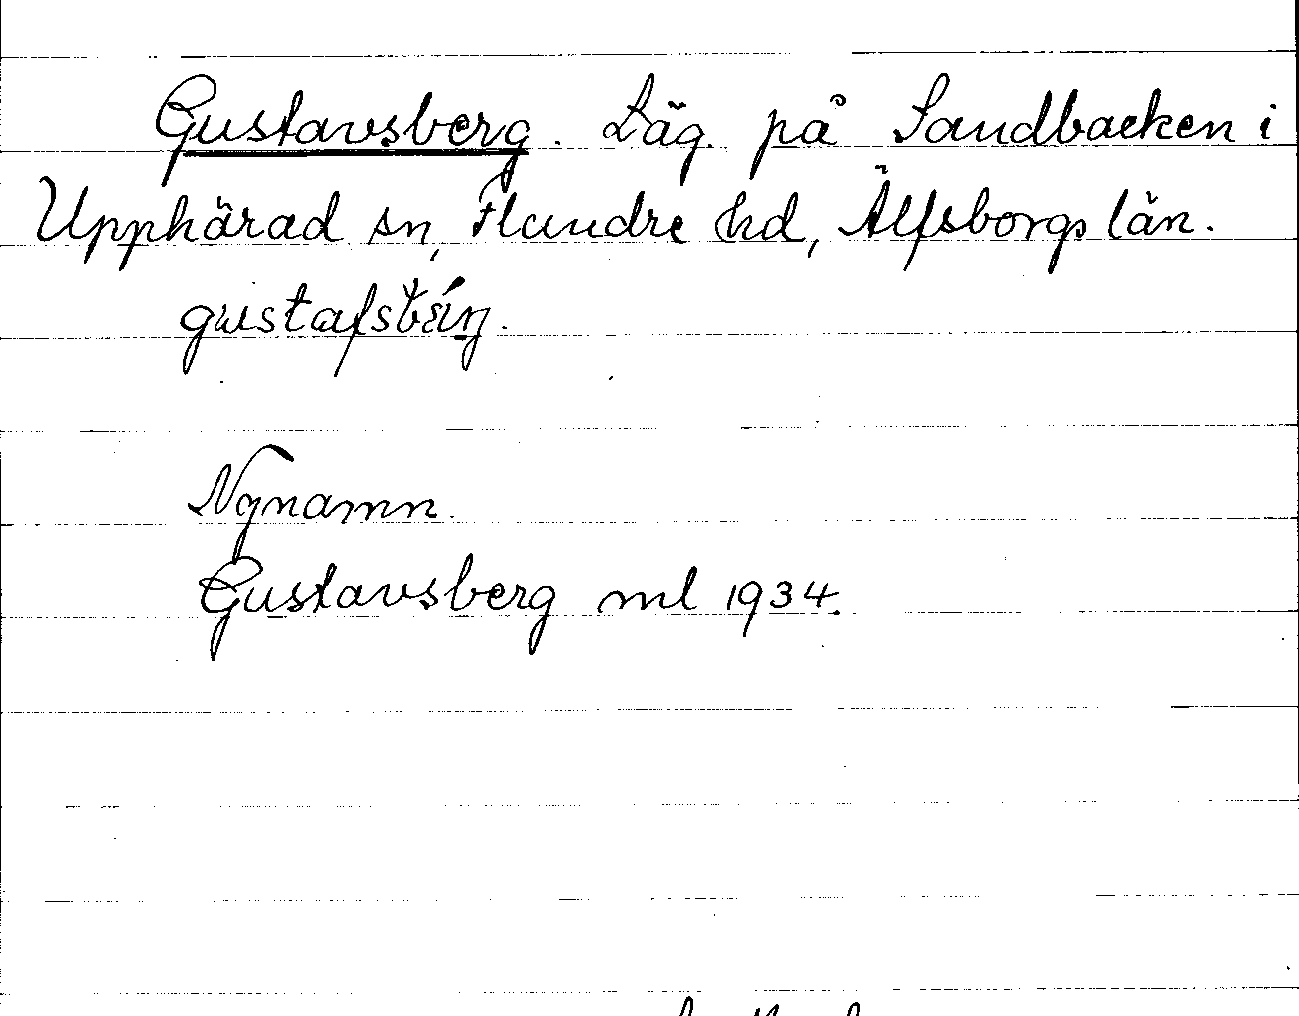 Gustavsberg. Läg. på Sandbacken i
Upphärad sn, Flundre hd, Älfsborgs län.
Nynamn.
Gustavsberg ml 1934.